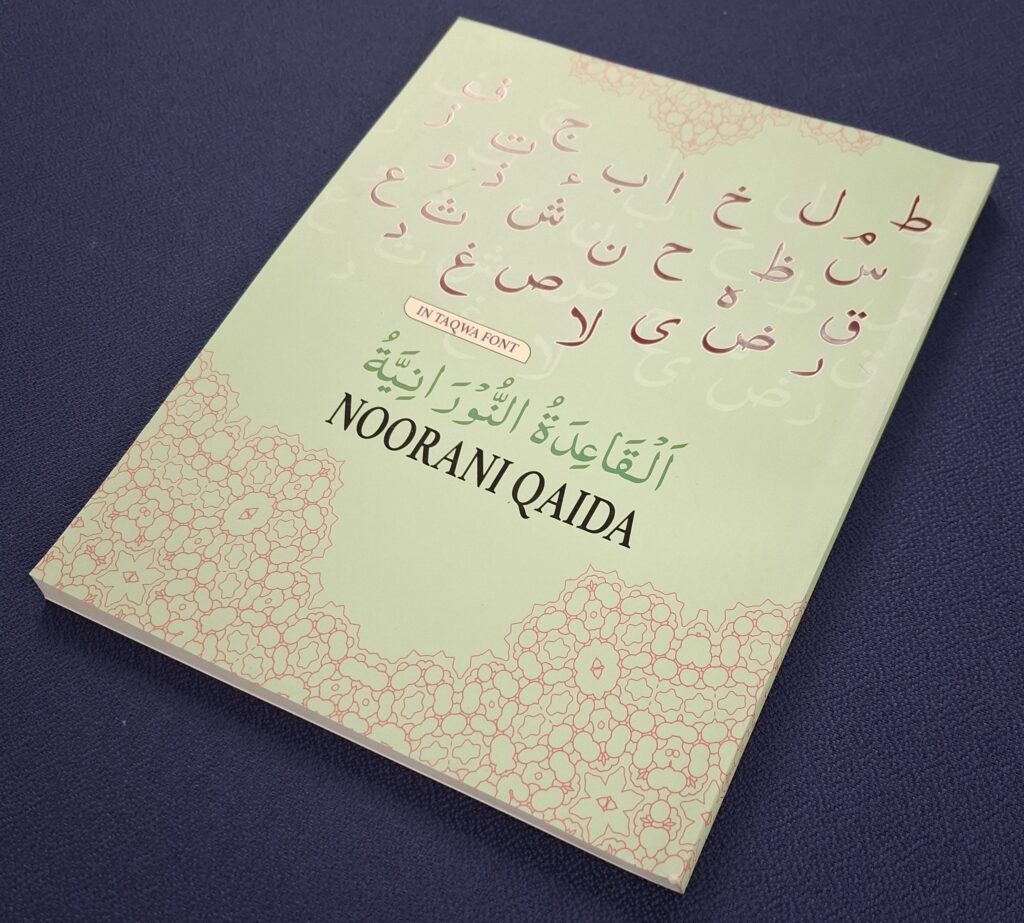 ط ل م خ ا ب ج ت ف ز
س ظ ح ن ء ش ذ و ث ع
ق ر ه ض ى لا ص غ د
IN TAQWA FONT
اَلْقَاعِدَةُ النُّوْرَانِيَّةُ
NOORANI QAIDA